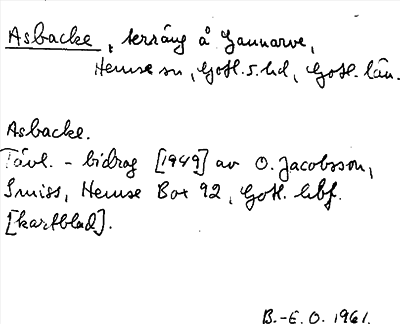 Asbacke, terräng å Gannarve,
Hemse sn, Gotl. s. hd, Gotl. län.
Asbacke.
Tävl.-bidrag [1949] av O. Jacobsson,
Smiss, Hemse Box 92, Gotl. hbf.
[kartblad].
B.-E. O. 1961.